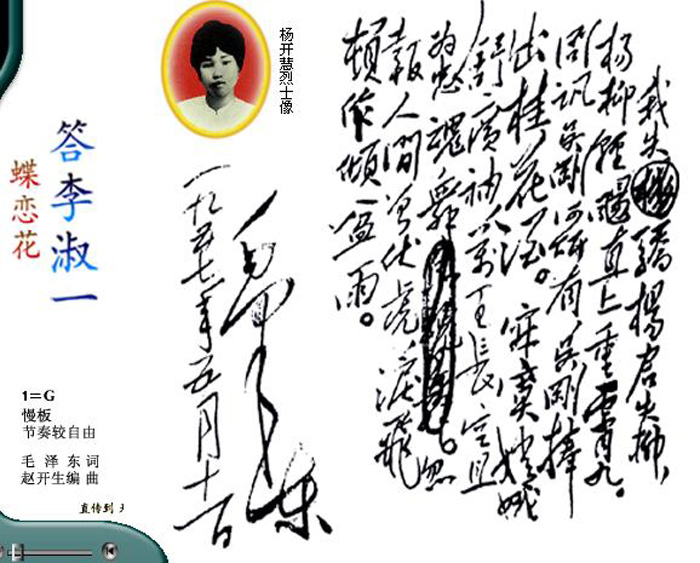 答李淑一
蝶恋花
杨开慧烈士像
1=G
慢板
节奏较自由
毛泽东词
赵开生编曲
直传到
我失骄楊君失柳,
杨柳轻飏直上重霄九。
问讯吴刚何所有吴刚捧
出桂花酒。寂寞嫦娥
舒广袖万里长空且
为忠魂舞。忽
報人间曾伏虎泪飛
顿作倾盆雨。
毛泽东
一九五七年五月十一日